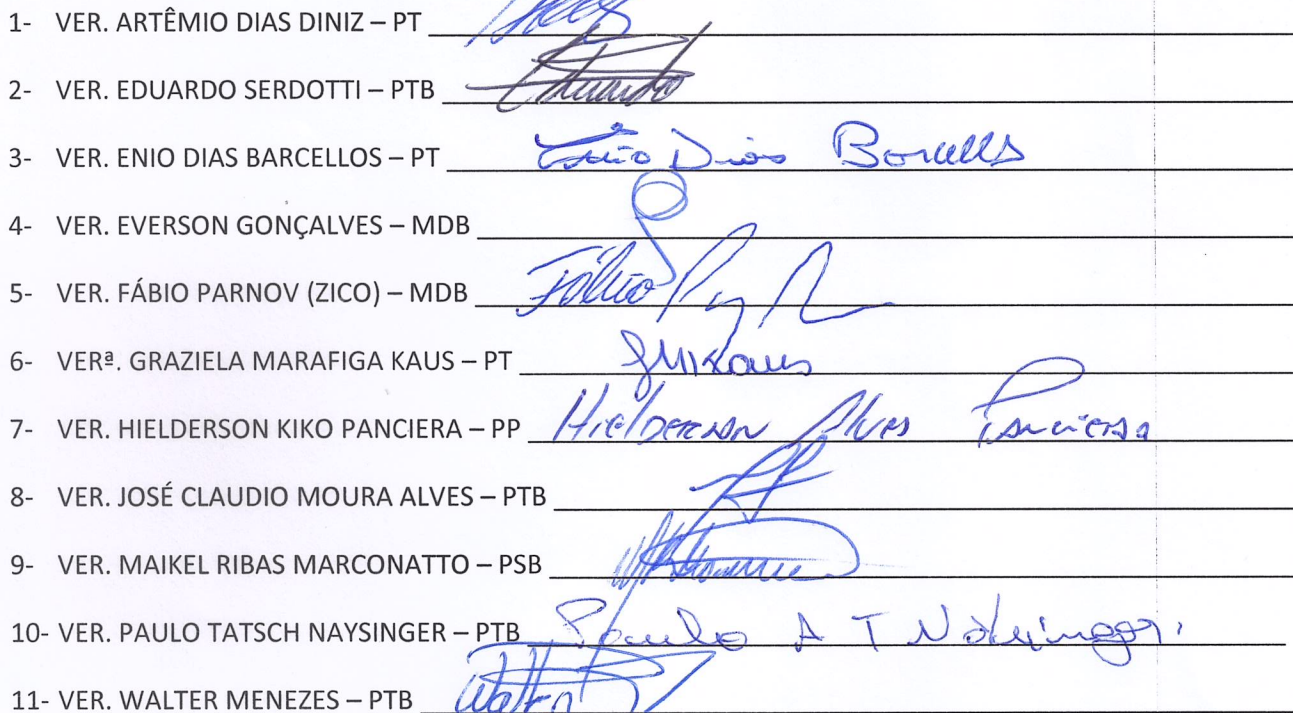 1- VER. ARTÊMIO DIAS DINIZ – PT
2- VER. EDUARDO SERDOTTI – PTB Eduardo
3- VER. ENIO DIAS BARCELLOS – PT Enio Dias Barcellos
4- VER. EVERSON GONÇALVES – MDB
5- VER. FÁBIO PARNOV (ZICO) – MDB Fábio
6- VERª. GRAZIELA MARAFIGA KAUS – PT GMKaus
7- VER. HIELDERSON KIKO PANCIERA – PP Hielderson Alves Panciera
8- VER. JOSÉ CLAUDIO MOURA ALVES – PTB
9- VER. MAIKEL RIBAS MARCONATTO – PSB
10- VER. PAULO TATSCH NAYSINGER – PTB Paulo A T Naysinger
11- VER. WALTER MENEZES – PTB Walter